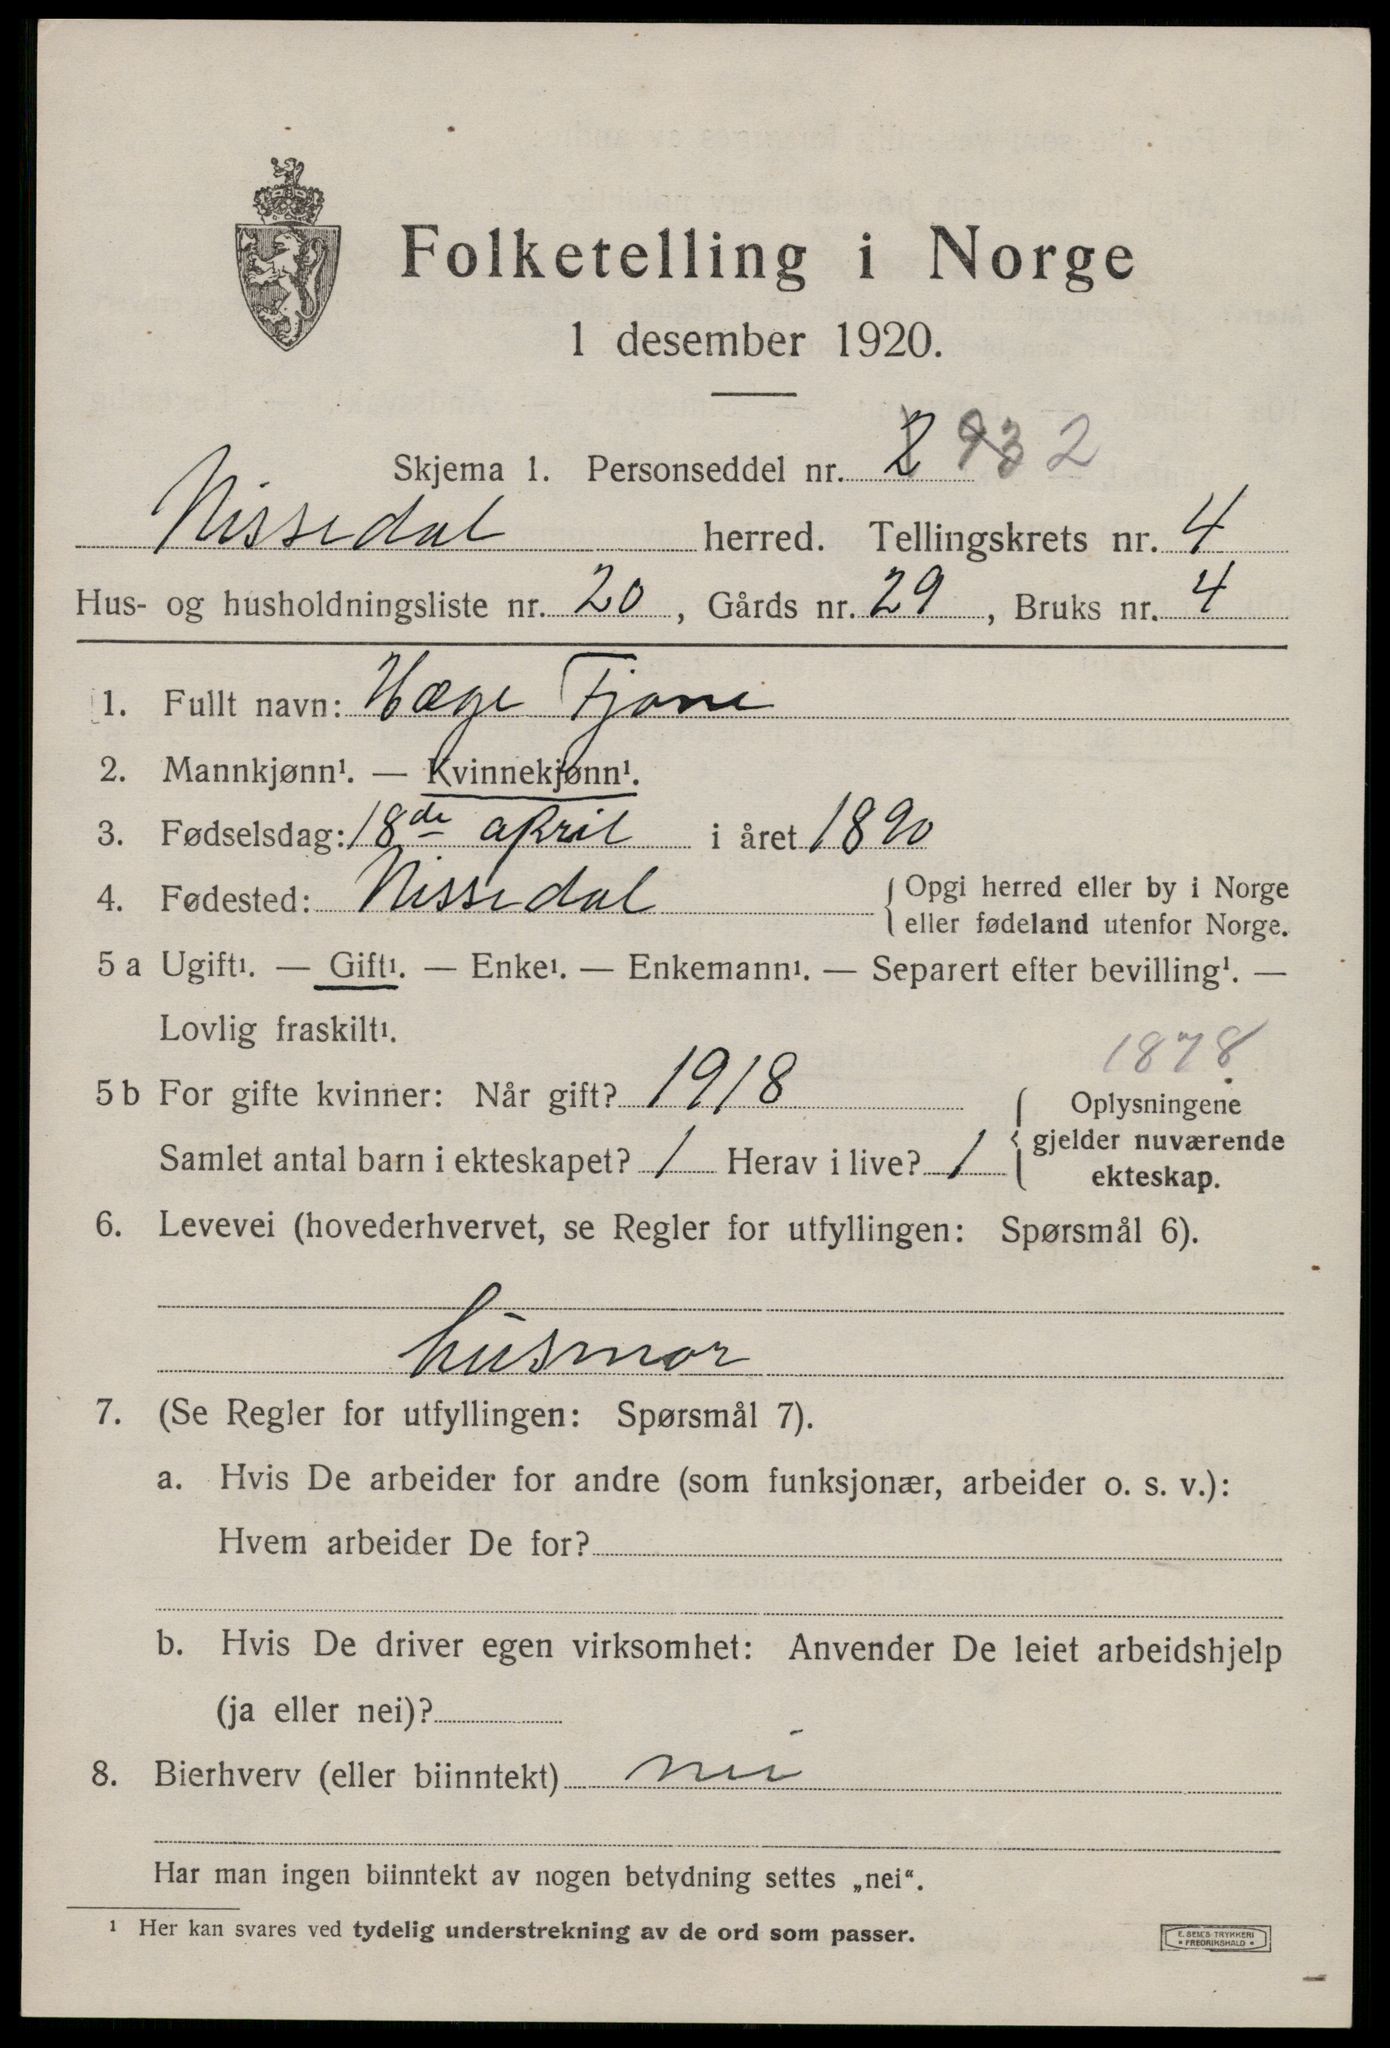 Folketelling i Norge
1 desember 1920.
Skjema 1. Personseddel nr. 2 932
Nissedal herred. Tellingskrets nr. 4
Hus- og husholdningsliste nr. 20, Gårds nr. 29, Bruks nr. 4
1. Fullt navn: Hæge Fjone
2. Mannkjønn¹. — Kvinnekjønn¹.
3. Fødselsdag: 18de april i året 1890
4. Fødested: Nissedal { Opgi herred eller by i Norge
eller fødeland utenfor Norge.
5 a Ugift¹. — Gift¹. — Enke¹. — Enkemann¹. — Separert efter bevilling¹. —
Lovlig fraskilt¹.
1878
5 b For gifte kvinner: Når gift? 1918
Samlet antal barn i ekteskapet? 1 Herav i live? 1
Oplysningene
gjelder nuværende
ekteskap.
6. Levevei (hovederhvervet, se Regler for utfyllingen: Spørsmål 6).
husmor
7. (Se Regler for utfyllingen: Spørsmål 7).
a. Hvis De arbeider for andre (som funksjonær, arbeider o. s. v.):
Hvem arbeider De for?
b. Hvis De driver egen virksomhet: Anvender De leiet arbeidshjelp
(ja eller nei)?
8. Bierhverv (eller biinntekt) nei
Har man ingen biinntekt av nogen betydning settes „nei“.
¹ Her kan svares ved tydelig understrekning av de ord som passer.
E. SEM'S TRYKKERI
• FREDRIKSHALD •